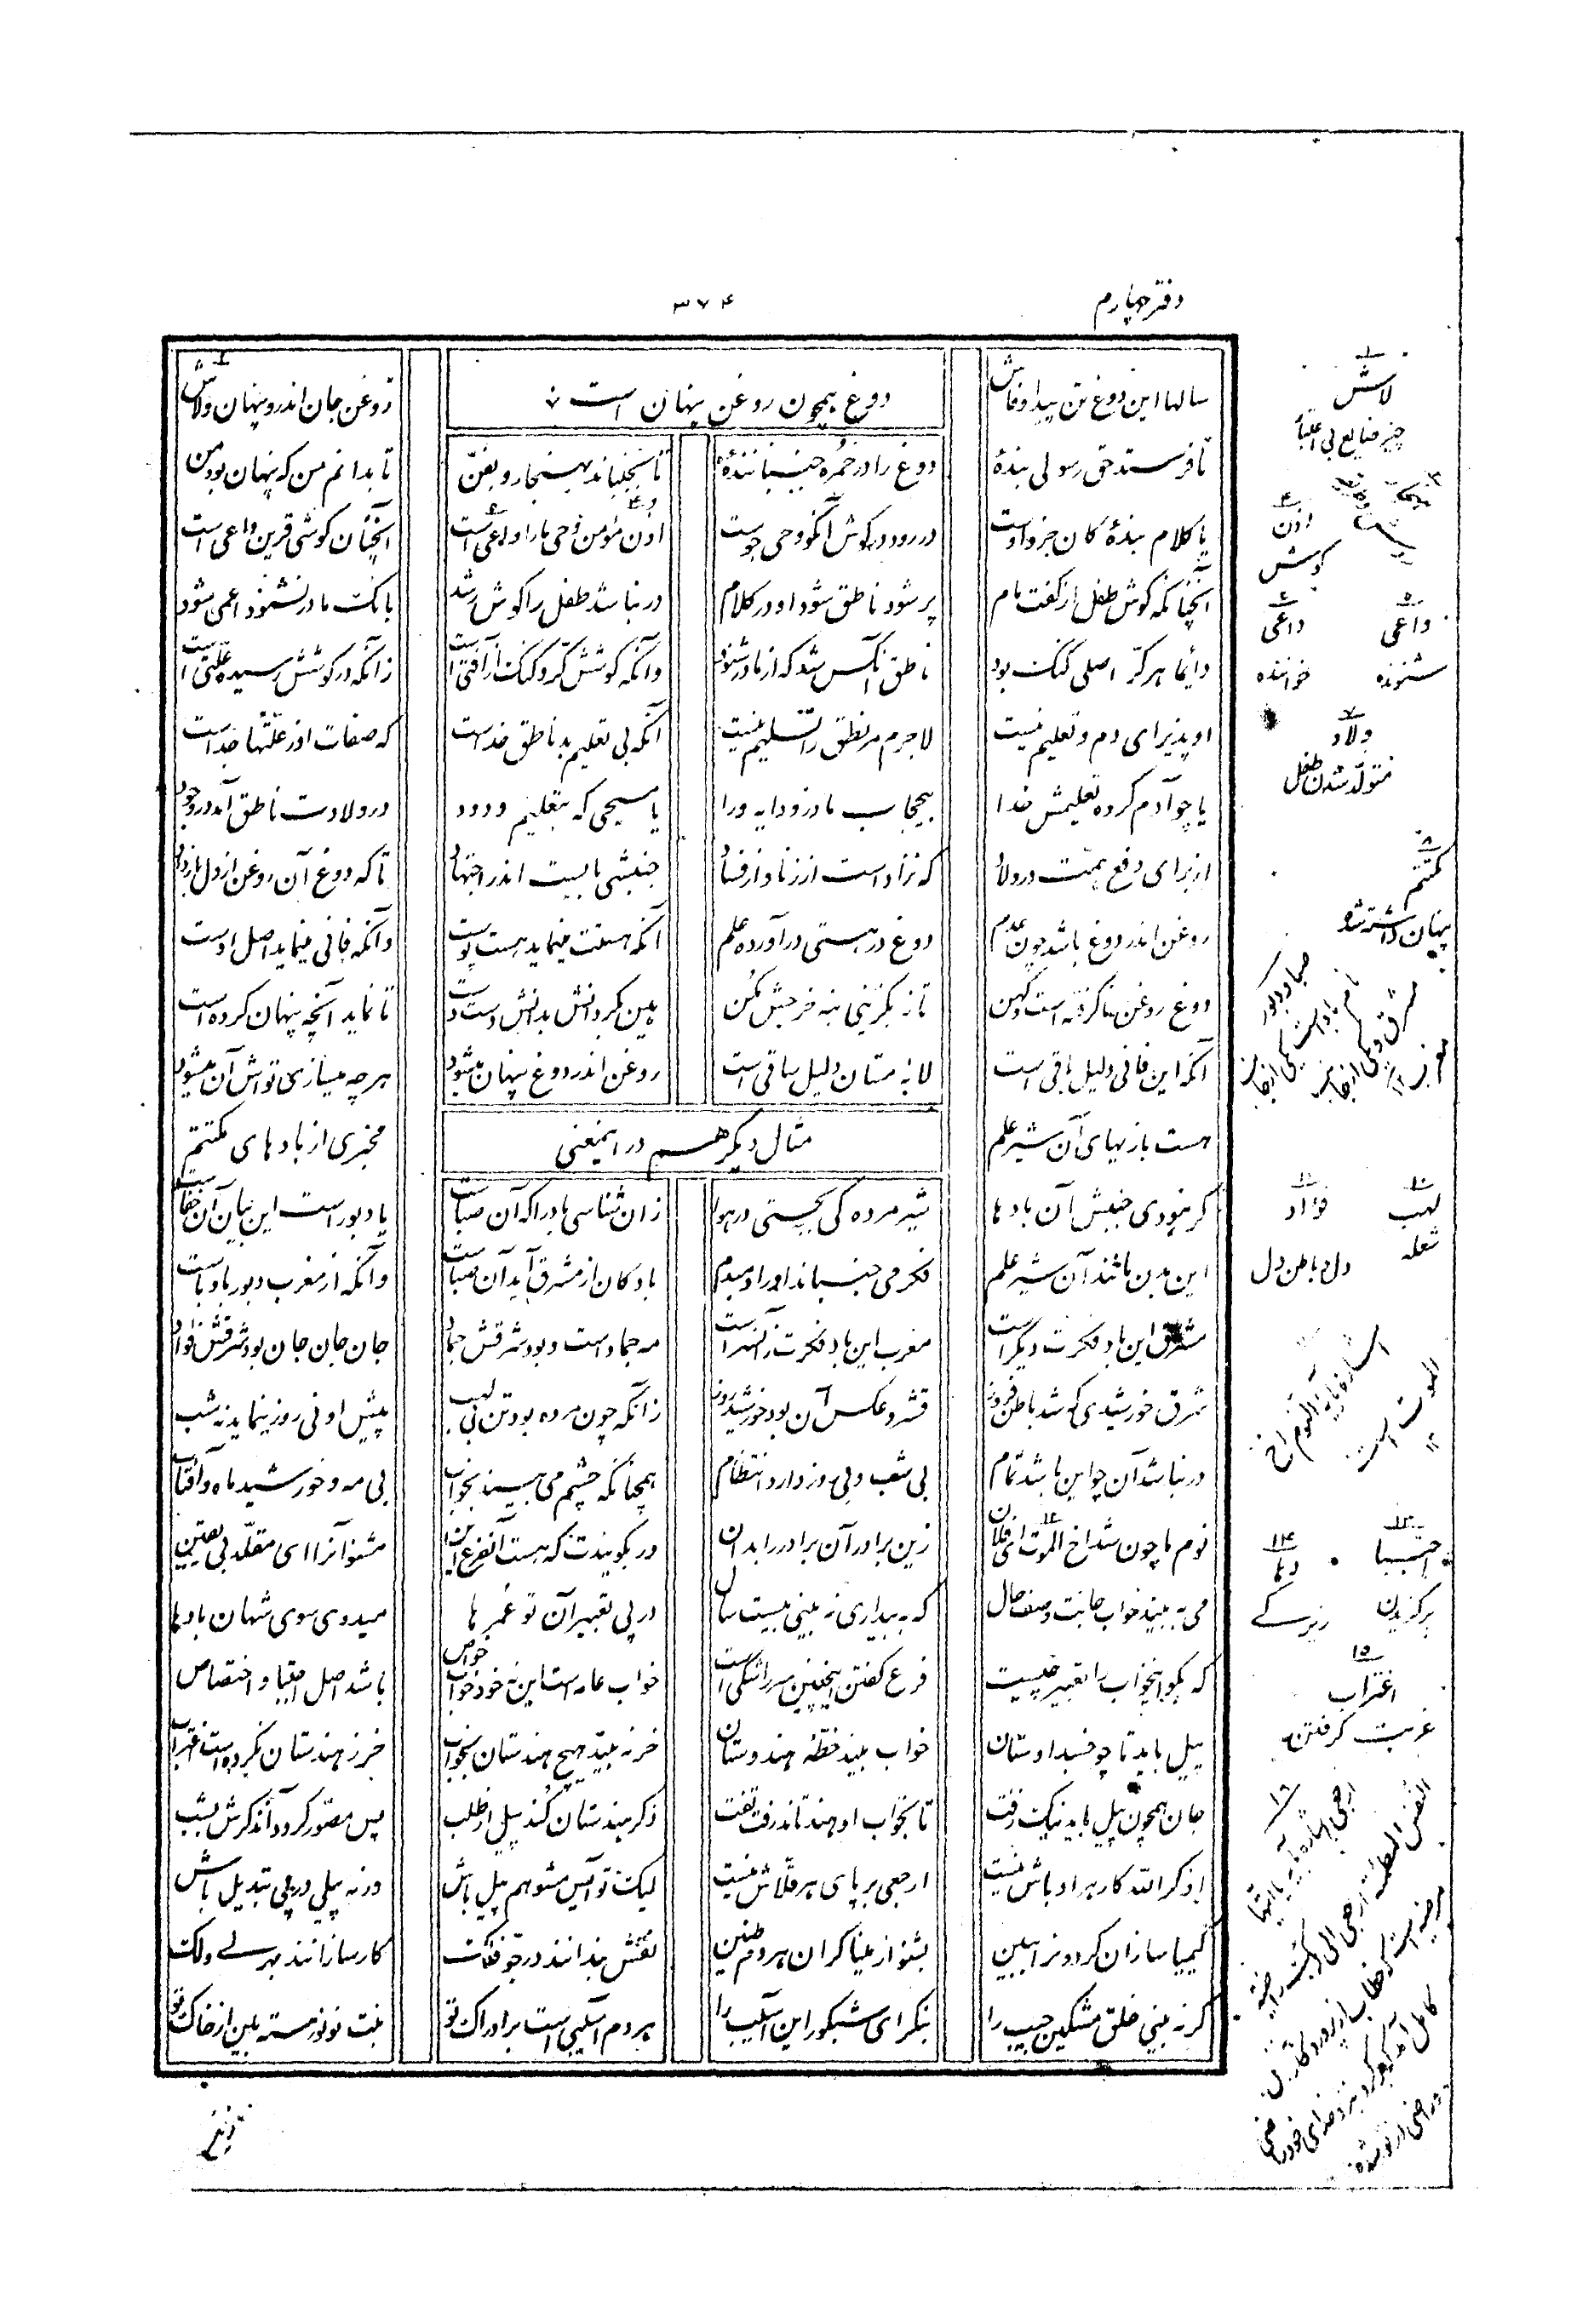 دفتر چهارم
۳۷۴
سالها این دوغ تن پیدا و فاش
دوغ همچون روغن پنهان است
روغن جان اندر و پنهان و لاش
تا فرستد حق رسولی بندهٔ دوغ را در خمره جنبانندهٔ تا بجنباند بهنجار و بفن تا بدانم من که پنهان بود من
یا کلام بندهٔ کان جزو اوست در رود در گوش آنکو وحی جوست اذن مؤمن وحی ما را واعی است آنچنان گوشی قرین داعی است
آنچنانکه گوش طفل از گفت مام پر شود ناطق شود او در کلام ور نباشد طفل را گوش رشد بانگ مادر نشنود اعمی شود
دائما هر کر اصلی گنگ بود ناطق آنکس شد که از مادر شنود وانکه گوشش کر و گنگ از آفتی است زانکه در گوشش رسیده علتی است
او پذیرای دم و تعلیم نیست لاجرم مر نطق را تسلیم نیست آنکه بی تعلیم بد ناطق خداست که صفات او ز علتها جداست
یا چو آدم کرده تعلیمش خدا بیحجاب مادر و دایه و را یا مسیحی که بتعلیم ودود در ولادت ناطق آمد در وجود
از برای دفع تهمت در ولاد که نزاد است از زنا و از فساد جنبشی بایست اندر اجتهاد تا که دوغ آن روغن از دل باز داد
روغن اندر دوغ باشد چون عدم دوغ در هستی در آورده علم آنکه هستت مینماید هست پوست وانکه فانی مینماید اصل اوست
دوغ روغن ناگرفته است و کهن تا نبگزینی بنه خرجش مکن هین بگردانش بدانش دست دست تا نماید آنچه پنهان کرده است
آنکه این فانی دلیل باقی است لابه مستان دلیل ساقی است روغن اندر دوغ پنهان میشود هرچه میسازی تواش آن میشود
هست بازیهای آن شیر علم
مثال دیگر هم در اینمعنی
مخبری از بادهای مکتتم
گر نبودی جنبش آن بادها شیر مرده کی بجستی در هوا زان شناسی باد را که آن صباست یا دبور است این بیان آن خفاست
این بدن مانند آن شیر علم فکر می جنباند او را دمبدم باد کان از مشرق آید آن صباست وانکه از مغرب دبور با وباست
مشرق این باد فکرت دیگر است مغرب این باد فکرت زانسر است مه جماد است و بود شرقش جماد جان جان جان بود شرقش فواد
شرق خورشیدی که شد باطن فروز قشر و عکس آن بود خورشید روز زانکه چون مرده بود تن بی لهب پیش او نی روز بنماید نه شب
ور نباشد آن چو این باشد تمام بی شب و بی روز دارد انتظام همچنانکه چشم می بیند بخواب بی مه و خورشید ماه و آفتاب
نوم ما چون شد اخ الموت ای فلان زین برادر آن برادر را بدان ور بگویندت که هست آن فرع این مشنو آنرا ای مقلد بی یقین
می به بیند خواب جانت وصف حال که به بیداری نه بینی بیست سال در پی تعبیر آن تو عمرها میدوی سوی شهان با دها
که بگو اینخواب را تعبیر چیست فرع گفتن اینچنین سر را سگی است خواب عامه است این نه خود خواب خواص باشد اصل اجتبا و اختصاص
پیل باید تا چو خسبد اوستان خواب بیند خطه هندوستان خر نه بیند هیچ هندستان بخواب خر ز هندستان نکرده است اغتراب
جان همچون پیل باید نیک زفت تا بخواب او هند تاند رفت تفت ذکر هندستان کند پیل از طلب پس مصور گردد آن ذکرش بشب
اذکر الله کار هر اوباش نیست ارجعی بر پای هر قلاش نیست لیک تو آیس مشو هم پیل باش ور نه پیلی در پی تبدیل باش
کیمیا سازان گردون را ببین بشنو از میناگران هر دم طنین نقش بندانند در جو فلک کارسازانند بهر لی و لک
گر نه بینی خلق مشکین جیب را بنگر ای شبکور این آسیب را هر دم آسیبی است بر ادراک تو نبت نو نو رسته بین از خاک تو
۱
لاش
چیز ضایع بی اعتبار
۴
اذن
گوش
۵
واعی
شنونده
۶
داعی
خواننده
۷
ولاد
متولد شدن طفل
۸
مکتتم
پنهان داشته شده
۱۰
لهب
شعله
۱۱
فؤاد
دل و باطن دل
۱۳
اجتبا
برگزیدن
۱۴
دها
زیرکی
۱۵
اغتراب
غربت گرفتن